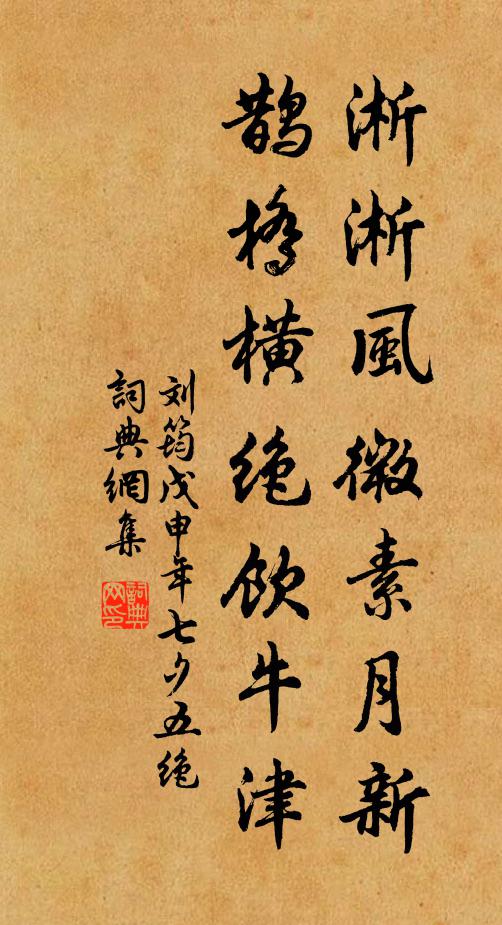 淅淅風微素月新
鵲橋橫絶飲牛津
刘筠戊申年七夕五絶
詞典網集
詞典网印